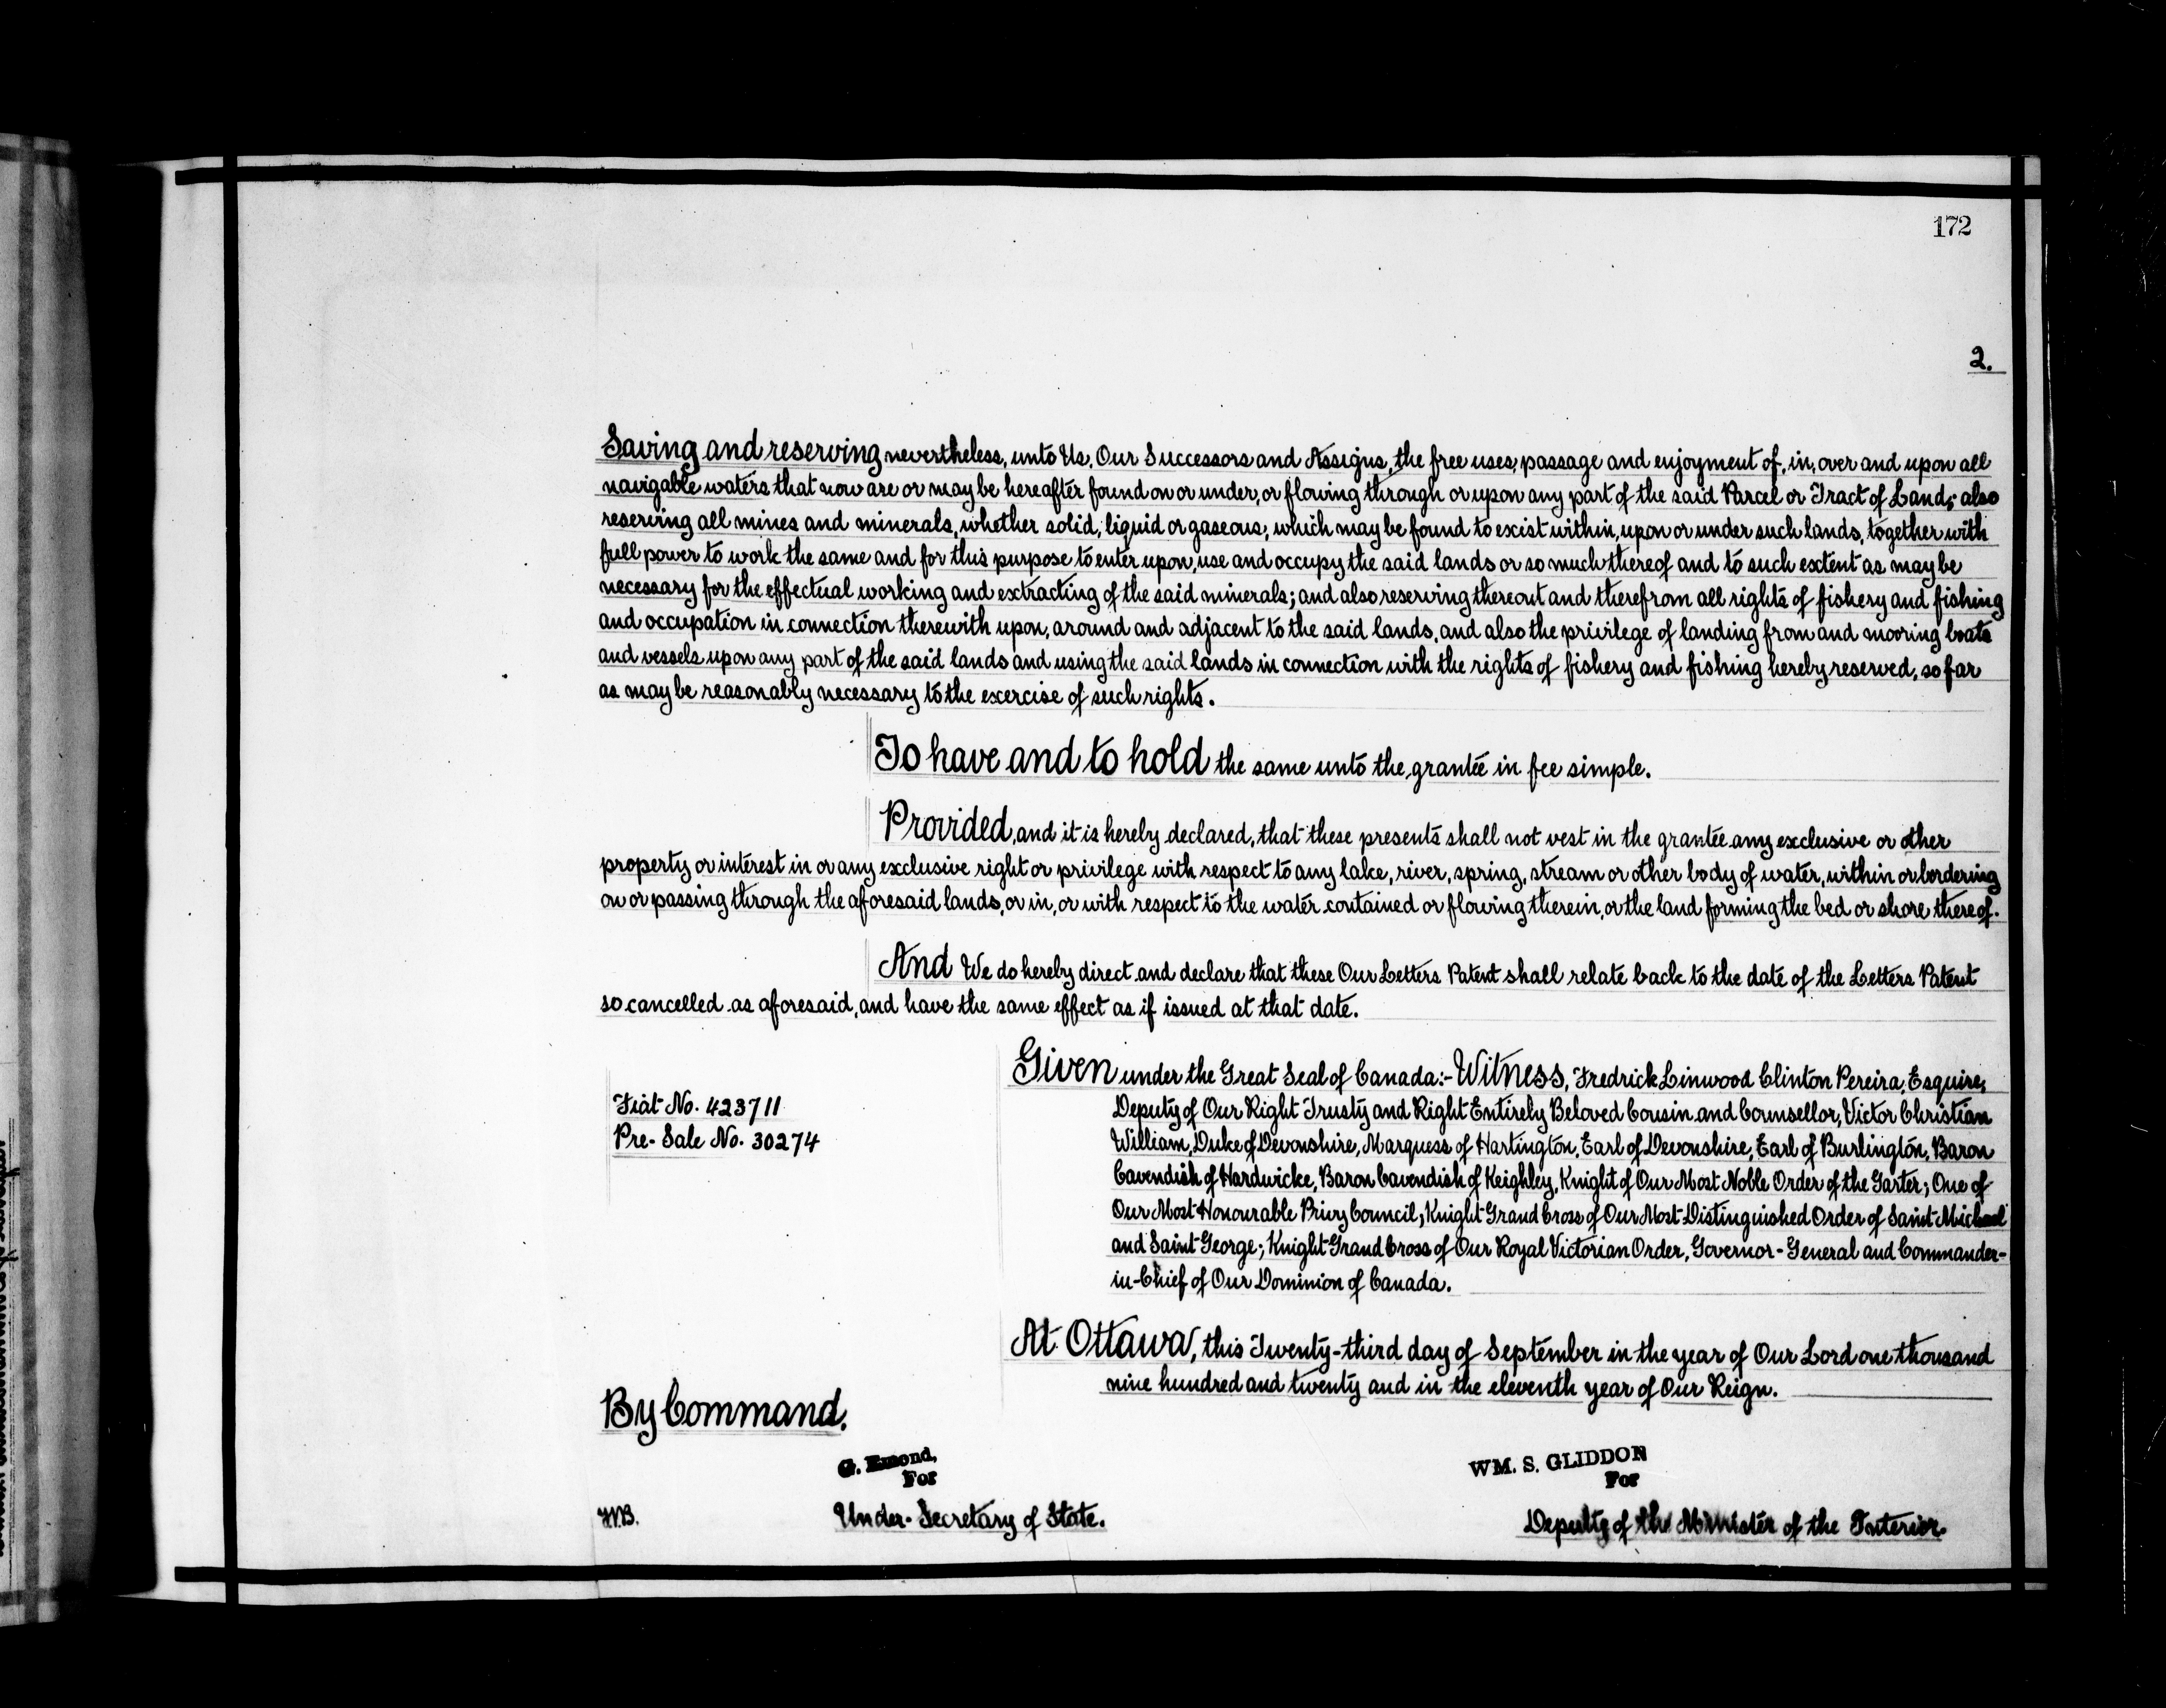 172
2.
Saving and reserving nevertheless, unto Us, Our Successors and Assigns, the free uses, passage and enjoyment of, in, over and upon all
navigable waters that now are or may be hereafter found on or under, or flowing through or upon any part of the said Parcel or Tract of Land; also
reserving all mines and minerals, whether solid, liquid or gaseous, which may be found to exist within, upon or under such lands, together with
full power to work the same and for this purpose to enter upon, use and occupy the said lands or so much thereof and to such extent as may be
necessary for the effectual working and extracting of the said minerals; and also reserving thereout and therefrom all rights of fishery and fishing
and occupation in connection therewith upon, around and adjacent to the said lands, and also the privilege of landing from and mooring boats
and vessels upon any part of the said lands and using the said lands in connection with the rights of fishery and fishing hereby reserved, so far
as may be reasonably necessary to the exercise of such rights.
To have and to hold the same unto the grantee in fee simple.
Provided, and it is hereby declared, that these presents shall not vest in the grantee any exclusive or other
property or interest in or any exclusive right or privilege with respect to any lake, river, spring, stream or other body of water, within or bordering
on or passing through the aforesaid lands, or in, or with respect to the water contained or flowing therein, or the land forming the bed or shore thereof.
And We do hereby direct and declare that these Our Letters Patent shall relate back to the date of the Letters Patent
so cancelled as aforesaid, and have the same effect as if issued at that date.
Given under the Great Seal of Canada:- Witness, Fredrick Linwood Clinton Pereira, Esquire,
Deputy of Our Right Trusty and Right Entirely Beloved Cousin and Counsellor, Victor Christian
William, Duke of Devonshire, Marquess of Hartington, Earl of Devonshire, Earl of Burlington, Baron
Cavendish of Hardwicke, Baron Cavendish of Keighley, Knight of Our Most Noble Order of the Garter; One of
Our Most Honourable Privy Council; Knight Grand Cross of Our Most Distinguished Order of Saint Michael
and Saint George; Knight Grand Cross of Our Royal Victorian Order, Governor-General and Commander-
in-Chief of Our Dominion of Canada.
Fiat No. 423711
Pre-Sale No. 30274
At Ottawa, this Twenty-third day of September in the year of Our Lord one thousand
nine hundred and twenty and in the eleventh year of Our Reign.
By Command.
G. Emond,
For
Under-Secretary of State.
WM. S. GLIDDON
For
Deputy of the Minister of the Interior.